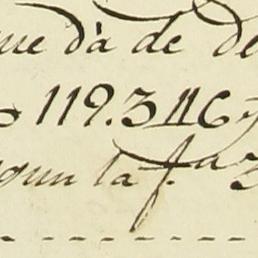 que dà de de
119.3116
segun la f.a 3